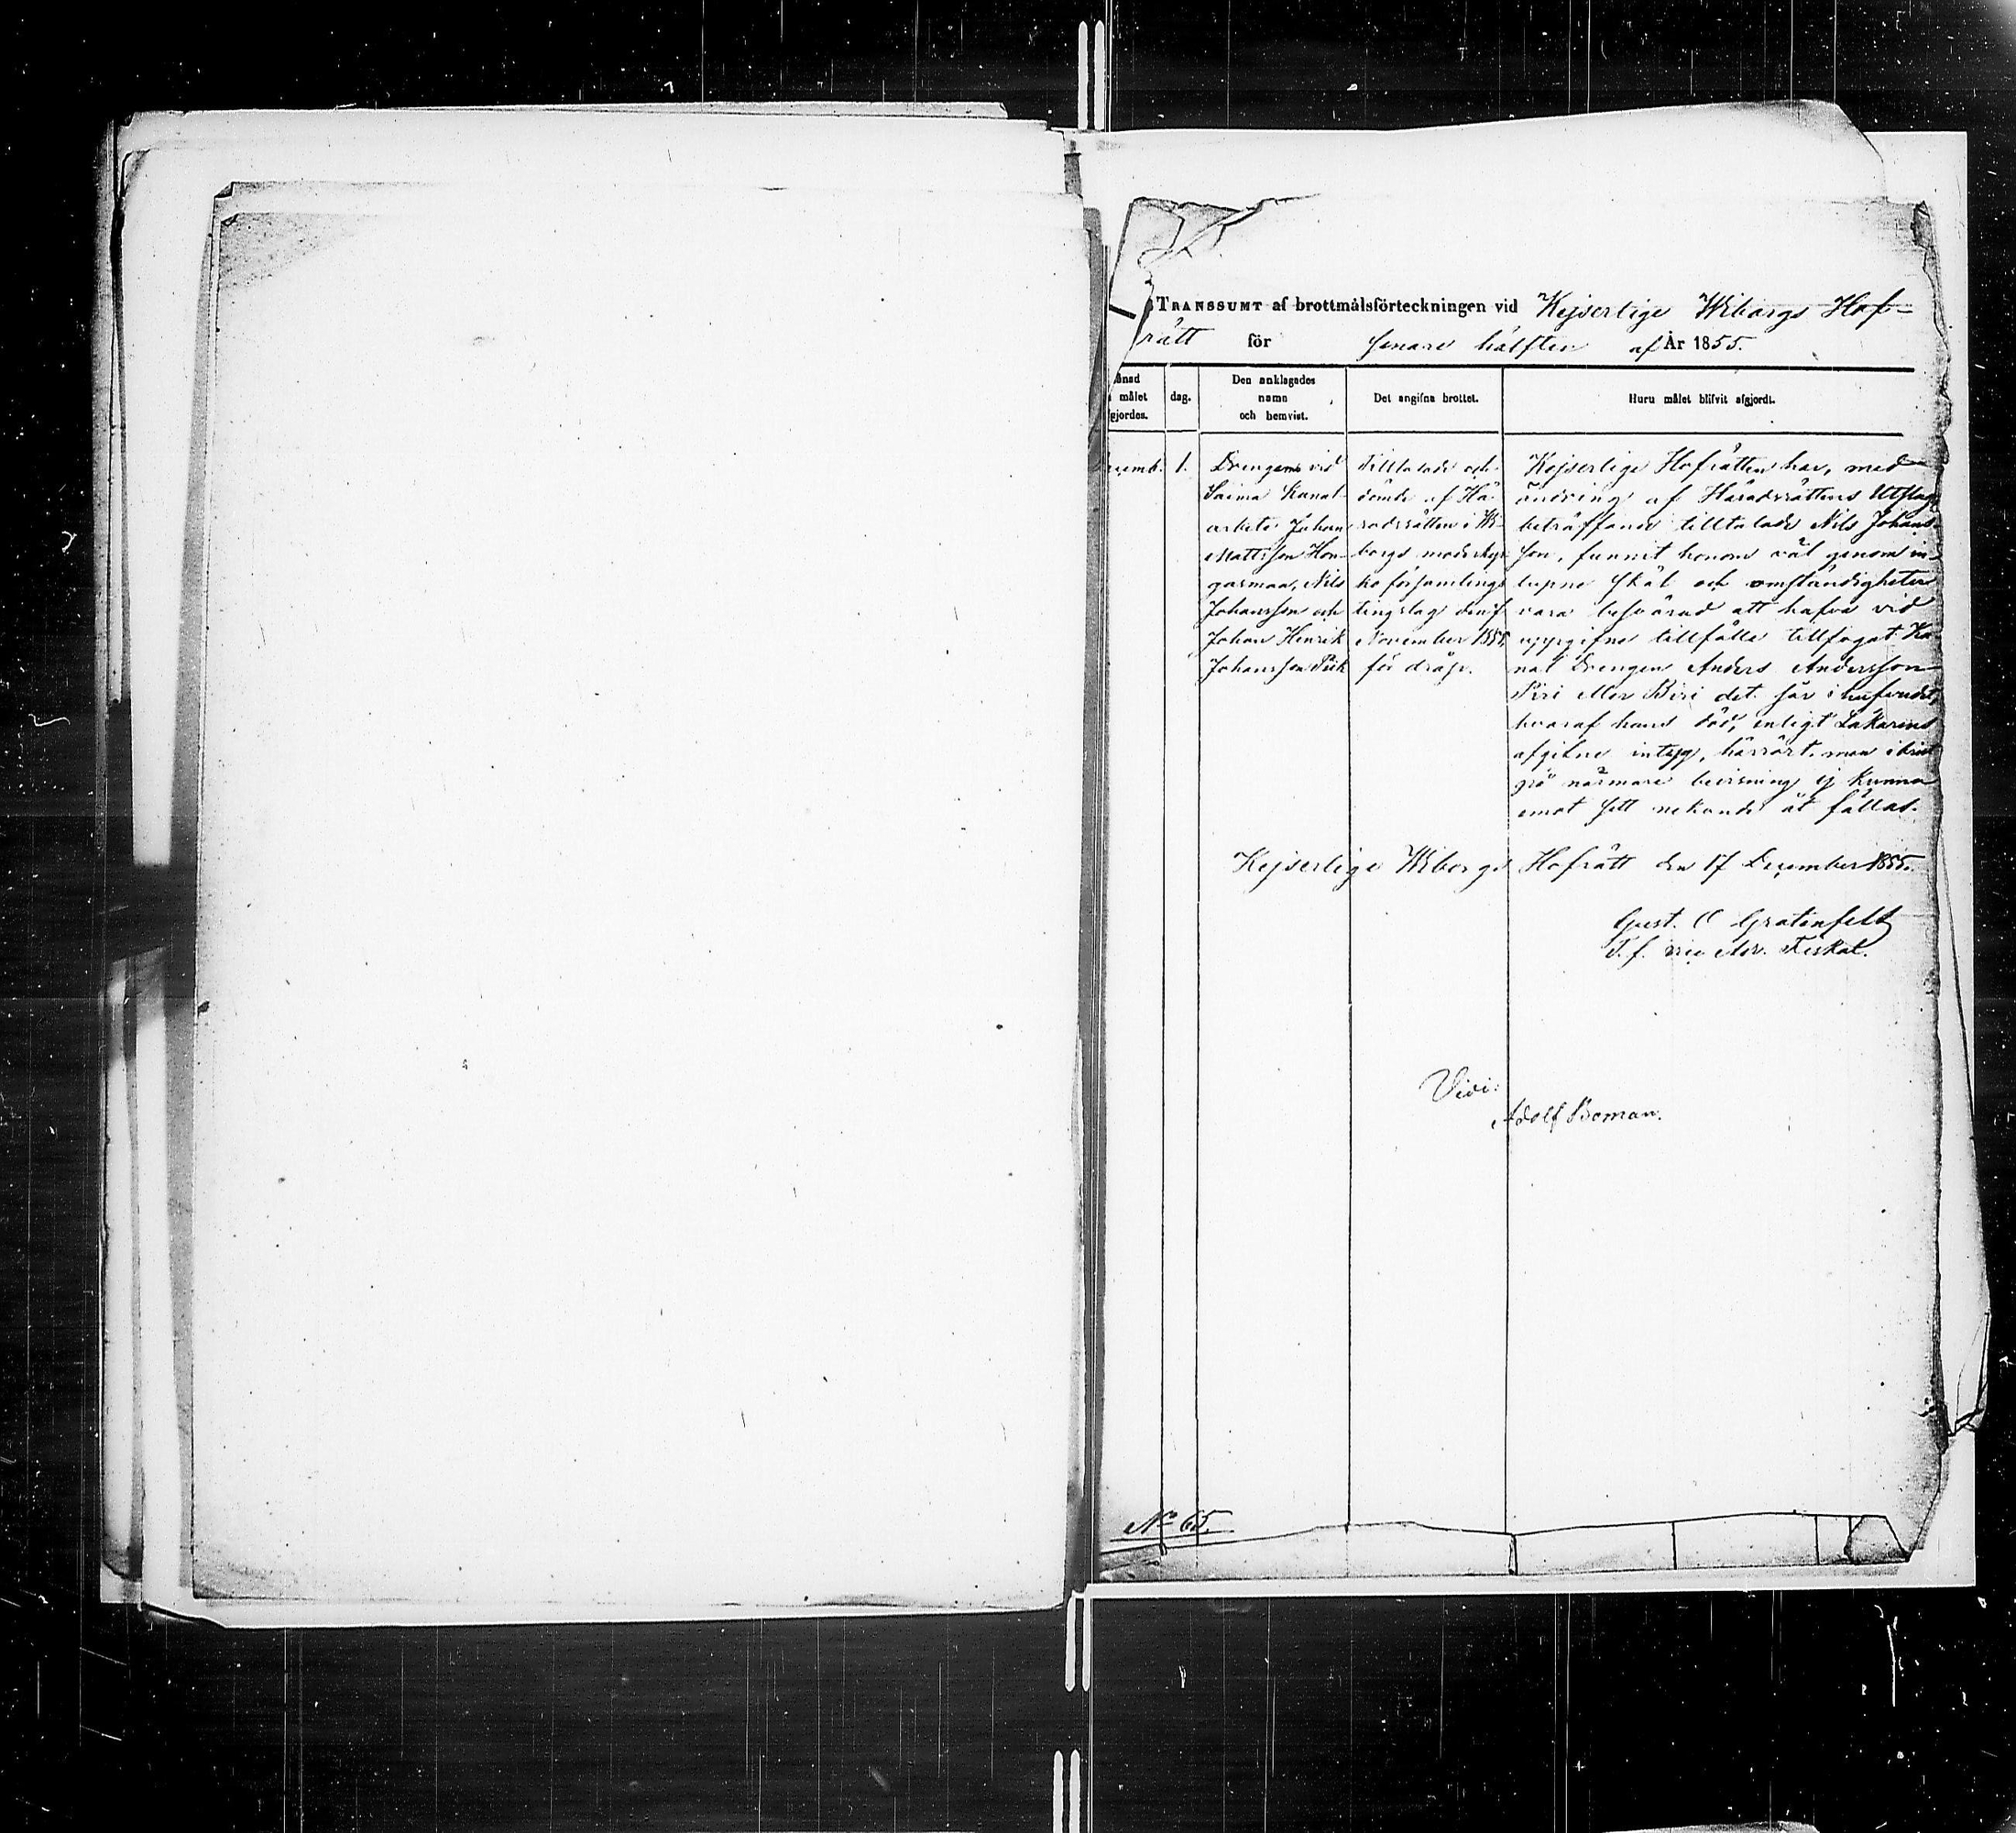 TRANSSUMT af brottmålsförteckningen vid Kejserlige Wiborgs Hof-
rätt för senare hälften af År 1855.
ånad
målet
gjordes.
dag.
Den anklagades
namn
och hemvist.
Det angifna brottet.
Huru målet blifvit afgjordt.
cemb.
1.
Drengarne vid
Saima Kanal-
arbete Johan
Mattsson Hon-
gasmaa, Nils
Johansson och
Johan Henrik
Johansson
Tilltalade och
dömde af Hä-
radsrätten i Wi-
borgs moderkyr-
ko församlings
tingslag den
November 1855,
för dråp.
Kejserlige Hofrätten har, med
ändring af Häradsrättens Utslag
beträffande tilltalade Nils Johans-
son, funnit honom väl genom in-
lupne skäl och omständigheter
vara besvärad att hafva vid
uppgifne tillfälle tillfogat Ka-
nal Drengen Anders Andersson
Piri eller Biri det sår i hufvudet,
hvaraf hans död, enligt Läkarens
afgifne intyg, härrört, men i brist
på närmare bevisning ej kunna
emot sitt nekande åt fällas.
Kejserlige Wiborgs Hofrätt den 17 December 1855.
Gust. A Gratenfelt
T. f. vice Adv. Fiskal.
Vidi:
Adolf Boman.
No 65.